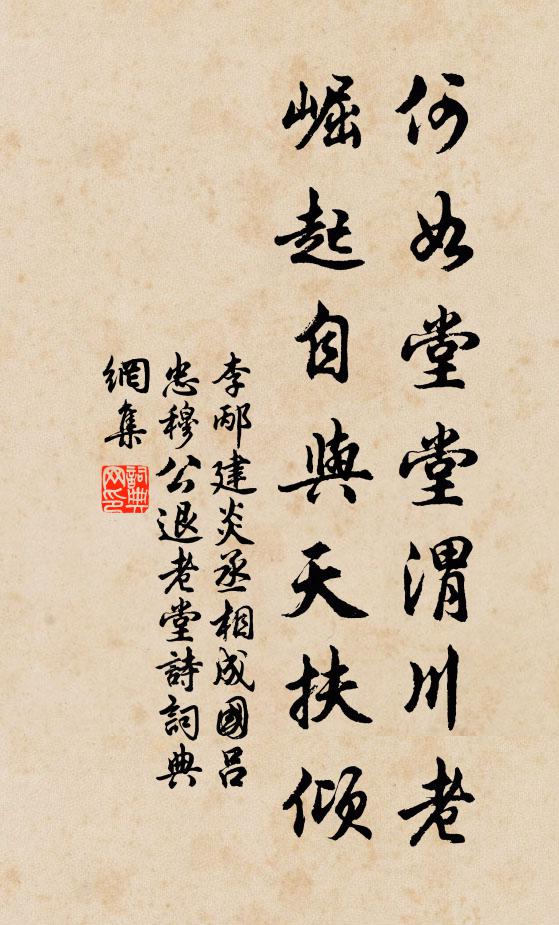 何如堂堂渭川老
崛起自與天扶傾
李邴建炎丞相成國呂
忠穆公退老堂詩詞典
網集
詞典
网印